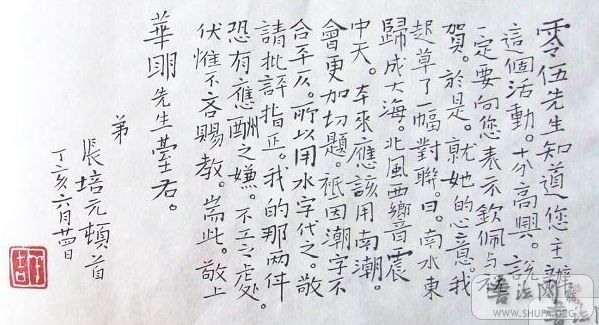 零伍先生知道您主辦
這個活動。十分高興。說
一定要向您表示欽佩与
賀。於是。就她的心意。我
起草了一幅對聯。曰。南水東
歸成大海。北風西嚮音震
中天。本來應該用南潮。
會更加切題。祇因潮字不
合平仄。所以用水字代之。敬
請批評指正。我的那两件
恐有應酬之嫌。不工之處。
伏惟不吝賜教。耑此。敬上
華明先生臺右。
弟
張培元頓首
丁亥六月廿四日
書法网
WWW.SHUPA.ORG